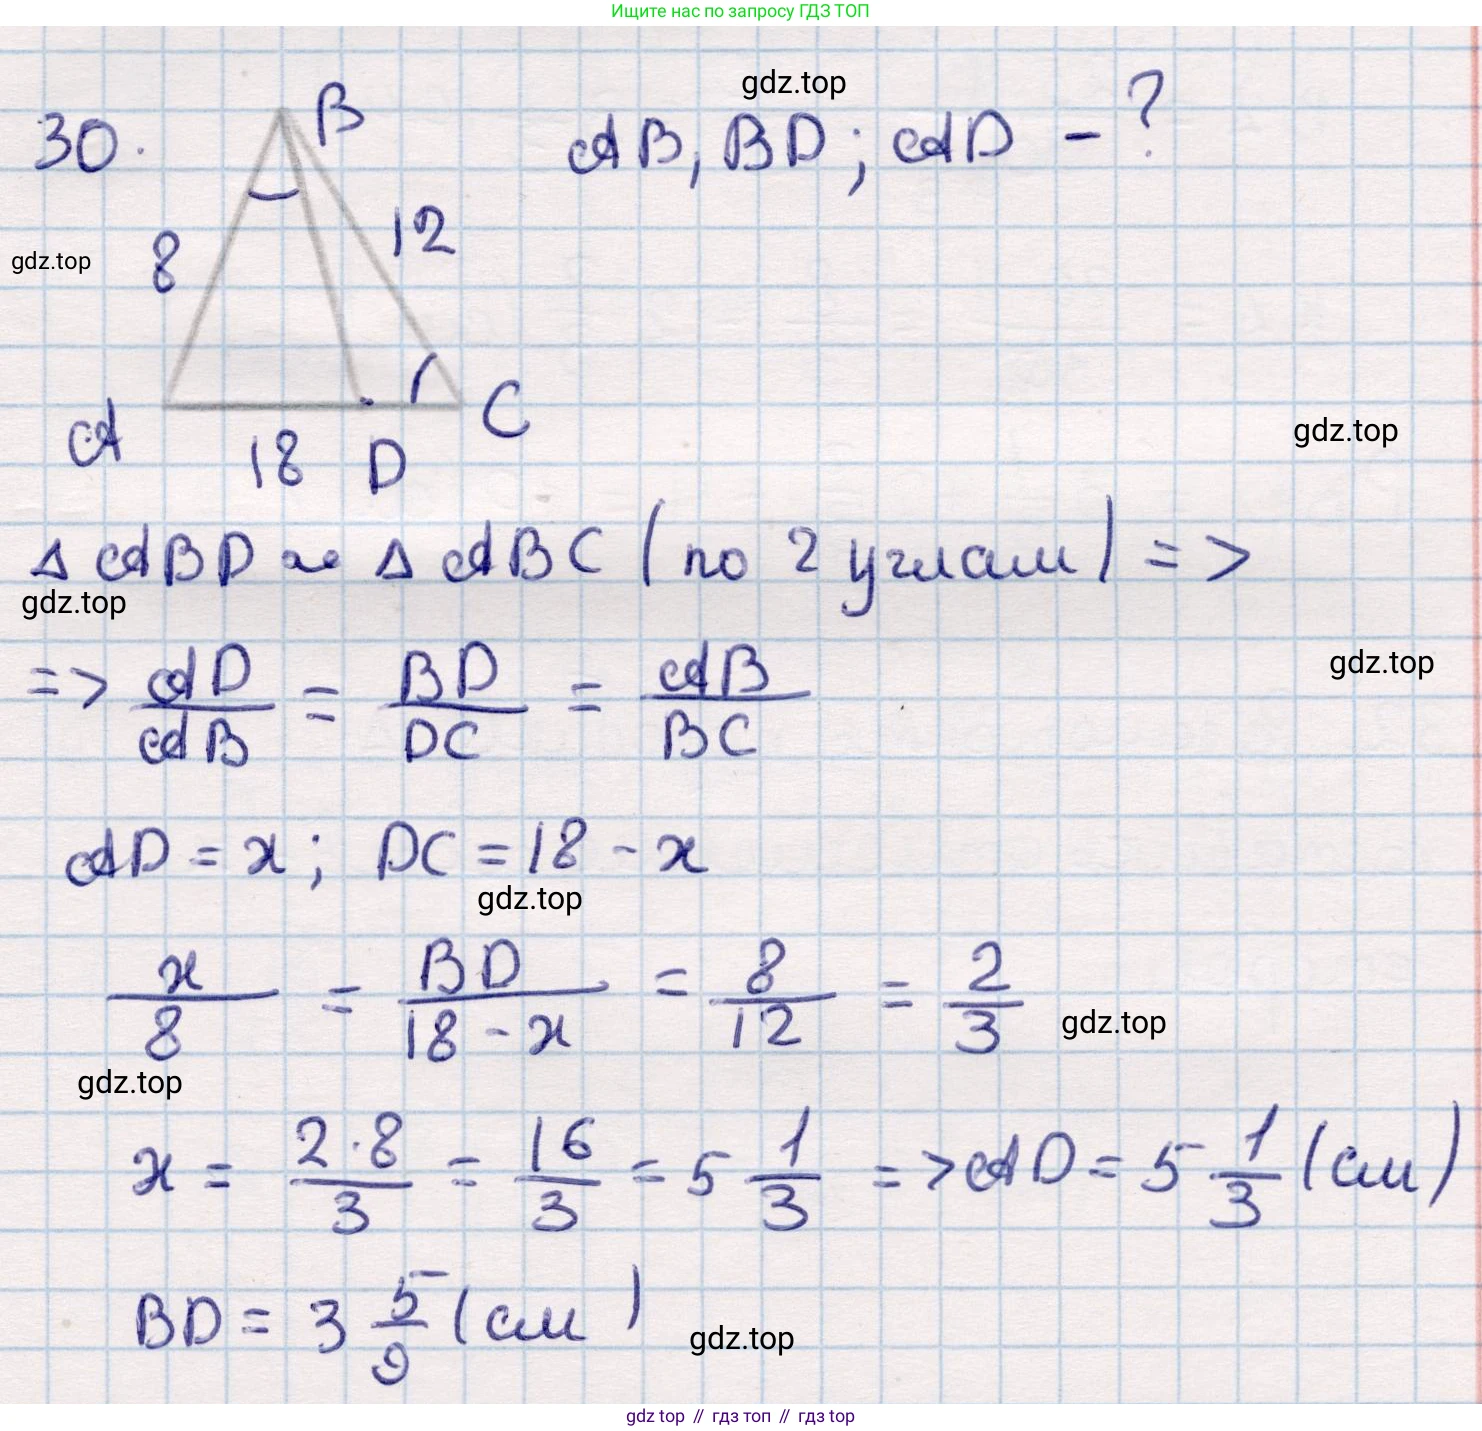 Ищите нас по запросу ГДЗ ТОП
gdz.top
30.
B
AB, BD; AD - ?
8
12
gdz.top
A
18
D
C
gdz.top
Δ ABD ~ Δ ABC (по 2 углам) =>
gdz.top
=> AD/AB = BD/DC = AB/BC
gdz.top
AD = x; DC = 18 - x
gdz.top
x/8 = BD/(18 - x) = 8/12 = 2/3
gdz.top
gdz.top
x = 2·8/3 = 16/3 = 5 1/3 => AD = 5 1/3 (см)
BD = 3 5/9 (см)
gdz.top
gdz top // гдз топ // гдз top